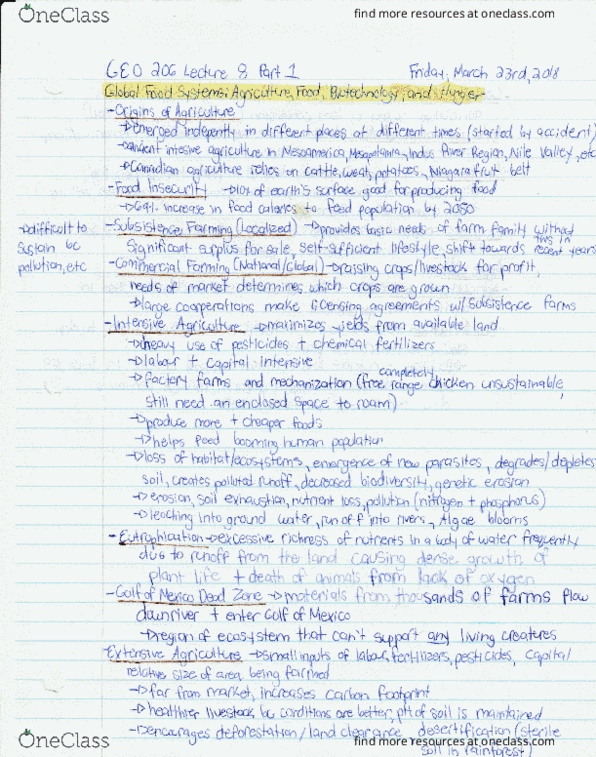 OneClass
find more resources at oneclass.com
GEO 206 Lecture 8 Part 1 Friday, March 23rd, 2018
Global Food Systems: Agriculture, Food, Biotechnology, and Hunger
-Origins of Agriculture
→Emerged indepently in different places at different times (started by accident)
→ancient intesive agriculture in Mesoamerica, Mesopotamia, Indus River Region, Nile Valley, etc
→Canadian agriculture relies on cattle, weat, potatoes, Niagara fruit belt
-Food Insecurity →10% of earth's surface good for producing food
→69% increase in food calories to feed population by 2050
-Subsistence Farming (Localized) →provides basic needs of farm family without
significant surplus for sale, self-sufficient lifestyle, shift towards this in recent years
→difficult to
sustain bc
pollution, etc
-Commercial Farming (National/Global) →raising crops/livestock for profit,
needs of market determines which crops are grown
→large cooperations make licensing agreements w/ subsistence farms
-Intensive Agriculture →maximizes yields from available land
→heavy use of pesticides + chemical fertilizers
→labour + capital intensive
→factory farms and mechanization (free range chicken completely unsustainable,
still need an enclosed space to roam)
→produce more + cheaper foods
→helps feed booming human population
→loss of habitat/ecosystems, emergence of new parasites, degrades/depletes
soil, creates polluted runoff, decreased biodiversity, genetic erosion
→erosion, soil exhaustion, nutrient loss, pollution (nitrogen + phosphorus)
→leaching into ground water, run off into rivers, Algae blooms
-Eutrophication→excessive richness of nutrients in a body of water frequently
due to runoff from the land causing dense growth of
plant life + death of animals from lack of oxygen
-Gulf of Mexico Dead Zone →materials from thousands of farms flow
downriver + enter Gulf of Mexico
→region of ecosystem that can't support any living creatures
-Extensive Agriculture →small inputs of labour, fertilizers, pesticides, capital
relative size of area being farmed
→far from market, increases carbon footprint
→healthier livestock bc conditions are better, pH of soil is maintained
→encourages deforestation/land clearance desertification (sterile
soil in rainforest)
OneClass
find more resources at oneclass.com